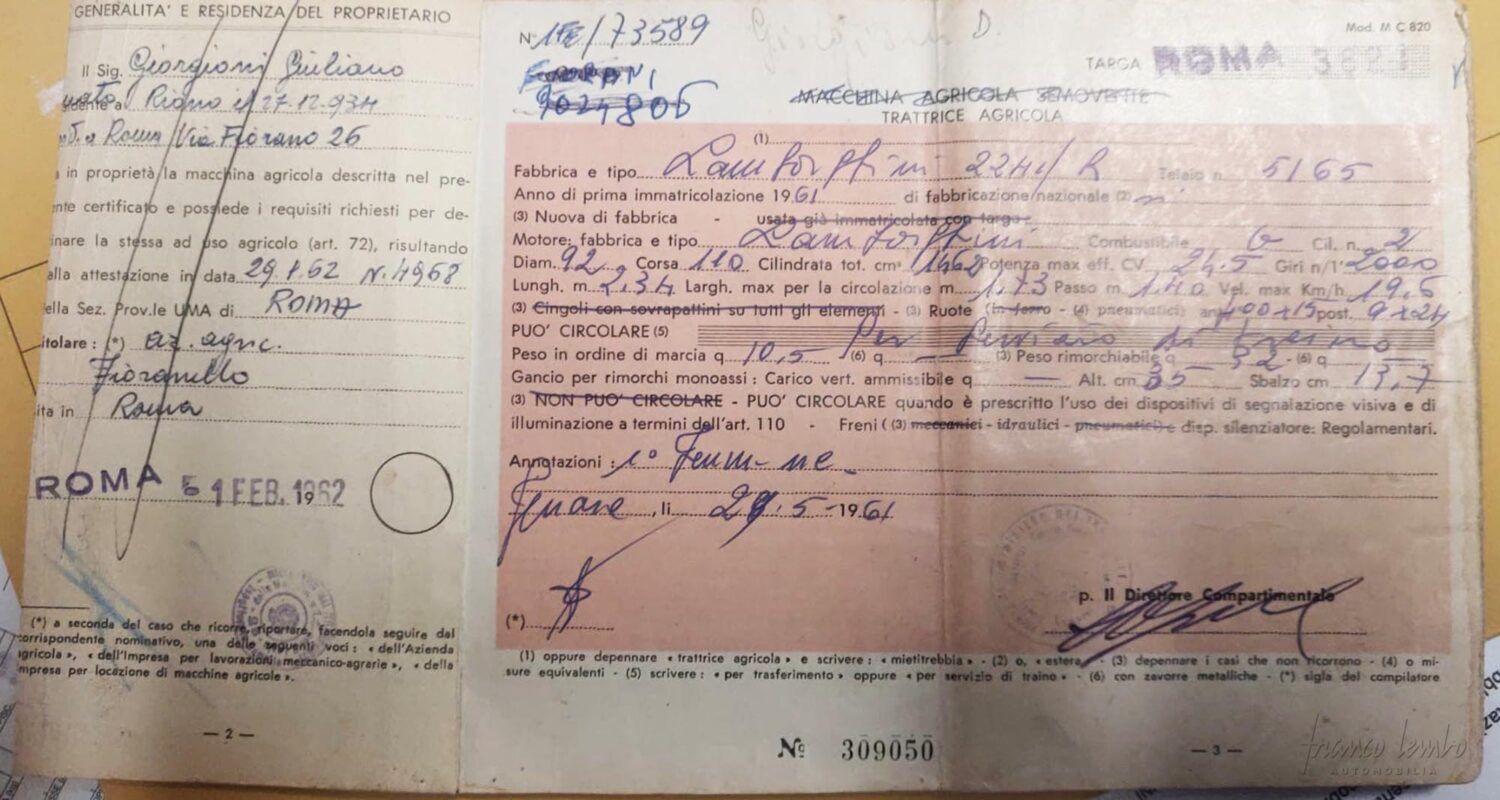 GENERALITA' E RESIDENZA DEL PROPRIETARIO
Il Sig. Giorgioni Giuliano
nato a Riano il 27.12.934
a Roma Via Fiorano 26
in proprietà la macchina agricola descritta nel pre-
nte certificato e possiede i requisiti richiesti per de-
inare la stessa ad uso agricolo (art. 72), risultando
alla attestazione in data 29.1.62 N. 4968
ella Sez. Prov.le UMA di ROMA
itolare : (*) az. agric.
Fioranello
ita in Roma
ROMA 1 FEB. 1962
(*) a seconda del caso che ricorre, riportare, facendola seguire dal
corrispondente nominativo, una delle seguenti voci : « dell'Azienda
agricola », « dell'Impresa per lavorazioni meccanico-agrarie », « della
mpresa per locazione di macchine agricole ».
— 2 —
N. /73589
9024806
D.
Mod. M C 820
TARGA ROMA
MACCHINA AGRICOLA SEMOVENTE
TRATTRICE AGRICOLA
(1)
Fabbrica e tipo Lamborghini 2241/R Telaio n. 5165
Anno di prima immatricolazione 1961 di fabbricazione/nazionale (2) si
(3) Nuova di fabbrica - usata già immatricolata con targa
Motore: fabbrica e tipo Lamborghini Combustibile G Cil. n. 2
Diam. 92 Corsa 110 Cilindrata tot. cm³ 1462 Potenza max eff. CV 24.5 Giri n/1' 2000
Lungh. m 2,34 Largh. max per la circolazione m 1,73 Passo m 1,40 Vel. max Km/h 19,5
(3) Cingoli con sovrapattini su tutti gli elementi - (3) Ruote (in ferro - (4) pneumatici) ant. 400x15 post. 9x24
PUO' CIRCOLARE (5) Per servizio di traino
Peso in ordine di marcia q 10,5 (6) q — (3) Peso rimorchiabile q 32 - (6) q —
Gancio per rimorchi monoassi : Carico vert. ammissibile q — Alt. cm 35 Sbalzo cm 13,7
(3) NON PUO' CIRCOLARE - PUO' CIRCOLARE quando è prescritto l'uso dei dispositivi di segnalazione visiva e di
illuminazione a termini dell'art. 110 - Freni ( (3) meccanici - idraulici - pneumatici) e disp. silenziatore: Regolamentari.
Annotazioni : 1°
, li 29.5-1961
(*)
p. Il Direttore Compartimentale
(1) oppure depennare « trattrice agricola » e scrivere : « mietitrebbia » - (2) o, « estera » - (3) depennare i casi che non ricorrono - (4) o mi-
sure equivalenti - (5) scrivere : « per trasferimento » oppure « per servizio di traino » - (6) con zavorre metalliche - (*) sigla del compilatore
Nº 309050
— 3 —
franco lembo
AUTOMOBILIA